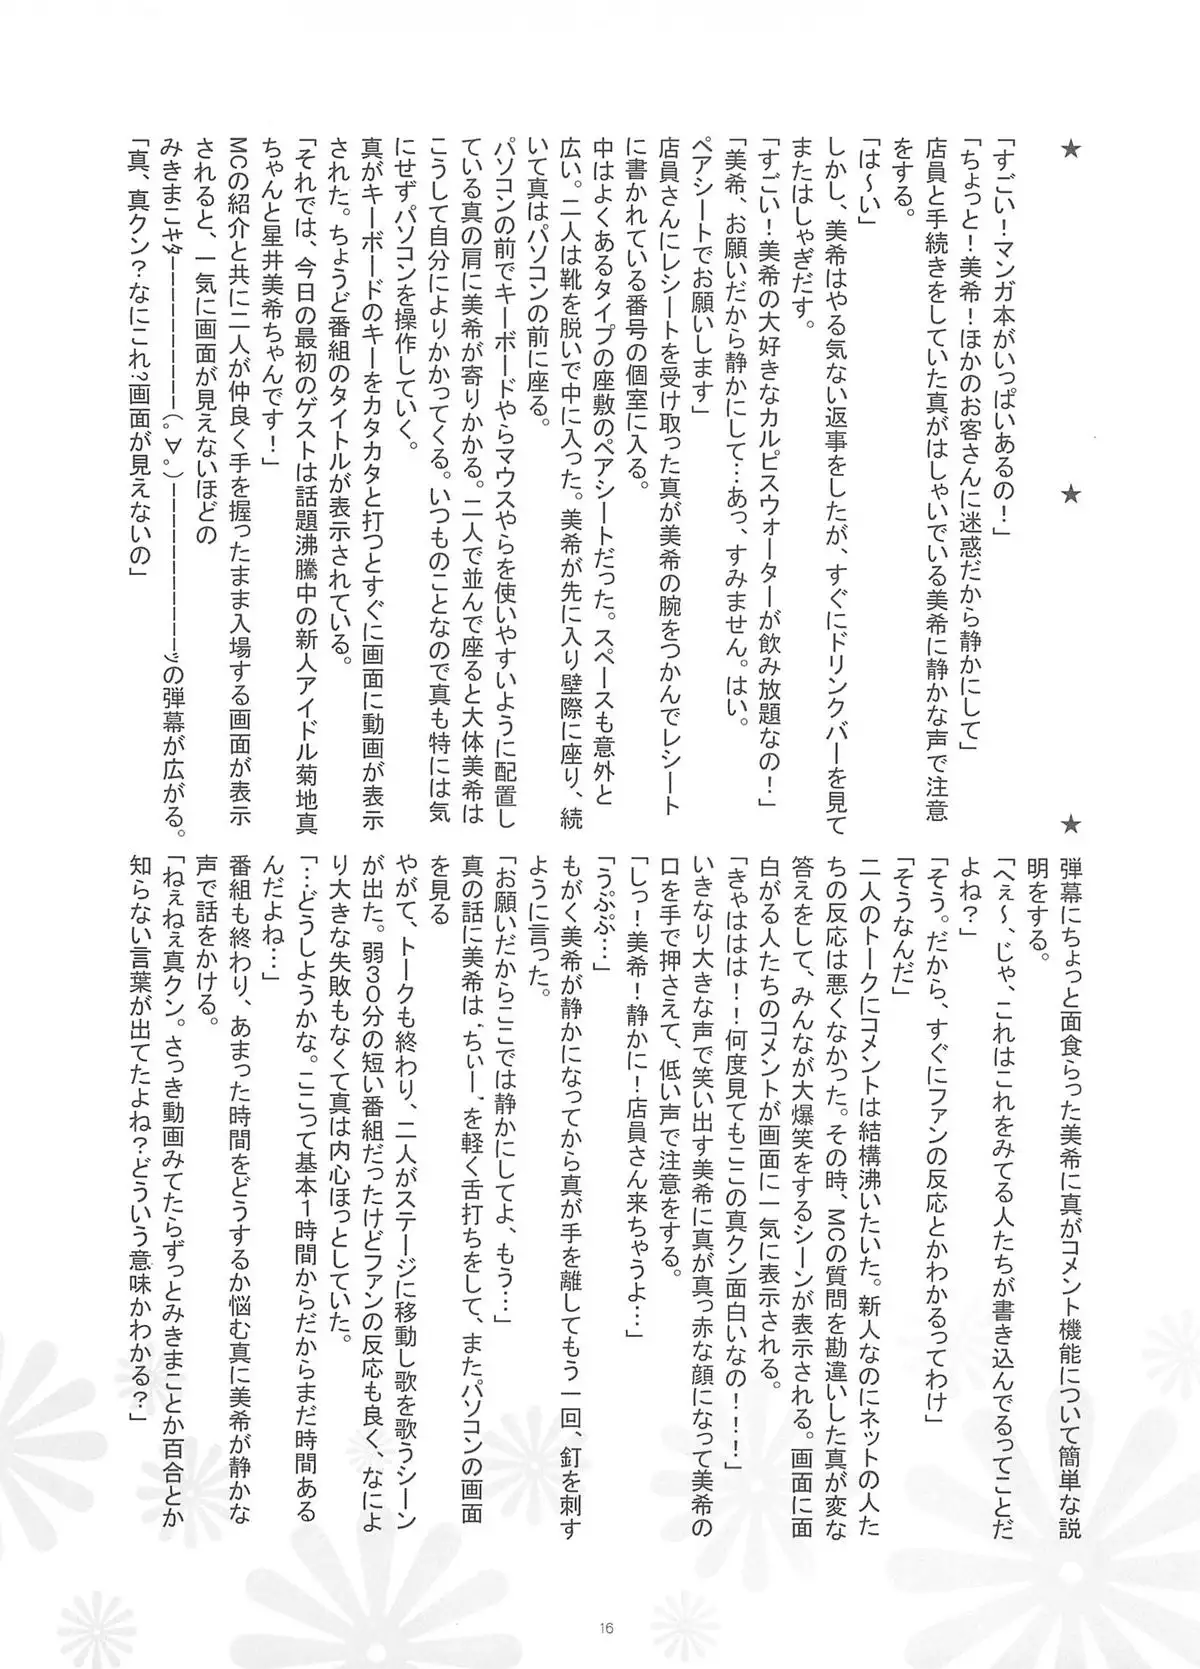 ★　★　★
「すごい！マンガ本がいっぱいあるの！」
「ちょっと！美希！ほかのお客さんに迷惑だから静かにして」
店員と手続きをしていた真がはしゃいでいる美希に静かな声で注意
をする。
「は～い」
しかし、美希はやる気ない返事をしたが、すぐにドリンクバーを見て
またはしゃぎだす。
「すごい！美希の大好きなカルピスウォーターが飲み放題なの！」
「美希、お願いだから静かにして…あっ、すみません。はい。
ペアシートでお願いします」
店員さんにレシートを受け取った真が美希の腕をつかんでレシート
に書かれている番号の個室に入る。
中はよくあるタイプの座敷のペアシートだった。スペースも意外と
広い。二人は靴を脱いで中に入った。美希が先に入り壁際に座り、続
いて真はパソコンの前に座る。
パソコンの前でキーボードやらマウスやらを使いやすいように配置し
ている真の肩に美希が寄りかかる。二人で並んで座ると大体美希は
こうして自分によりかかってくる。いつものことなので真も特には気
にせずパソコンを操作していく。
真がキーボードのキーをカタカタと打つとすぐに画面に動画が表示
された。ちょうど番組のタイトルが表示されている。
「それでは、今日の最初のゲストは話題沸騰中の新人アイドル菊地真
ちゃんと星井美希ちゃんです！」
MCの紹介と共に二人が仲良く手を握ったまま入場する画面が表示
されると、一気に画面が見えないほどの
みきまこｷﾀｰｰｰｰｰｰｰｰｰｰ(ﾟ∀ﾟ)ｰｰｰｰｰｰｰｰｰｰ”の弾幕が広がる。
「真、真クン？なにこれ？画面が見えないの」
弾幕にちょっと面食らった美希に真がコメント機能について簡単な説
明をする。
「へぇ～、じゃ、これはこれをみてる人たちが書き込んでるってことだ
よね？」
「そう。だから、すぐにファンの反応とかわかるってわけ」
「そうなんだ」
二人のトークにコメントは結構沸いたいた。新人なのにネットの人た
ちの反応は悪くなかった。その時、MCの質問を勘違いした真が変な
答えをして、みんなが大爆笑をするシーンが表示される。画面に面
白がる人たちのコメントが画面に一気に表示される。
「きゃははは！！何度見てもここの真クン面白いなの！！！」
いきなり大きな声で笑い出す美希に真が真っ赤な顔になって美希の
口を手で押さえて、低い声で注意をする。
「しっ！美希！静かに！店員さん来ちゃうよ…」
「うぷぷ…」
もがく美希が静かになってから真が手を離してもう一回、釘を刺す
ように言った。
「お願いだからここでは静かにしてよ、もう…」
真の話に美希は、“ちぃー”、を軽く舌打ちをして、またパソコンの画面
を見る
やがて、トークも終わり、二人がステージに移動し歌を歌うシーン
が出た。弱３０分の短い番組だったけどファンの反応も良く、なによ
り大きな失敗もなくて真は内心ほっとしていた。
「…どうしようかな。ここって基本１時間からだからまだ時間ある
んだよね…」
番組も終わり、あまった時間をどうするか悩む真に美希が静かな
声で話をかける。
「ねぇねぇ真クン。さっき動画みてたらずっとみきまことか百合とか
知らない言葉が出てたよね？どういう意味かわかる？」
16